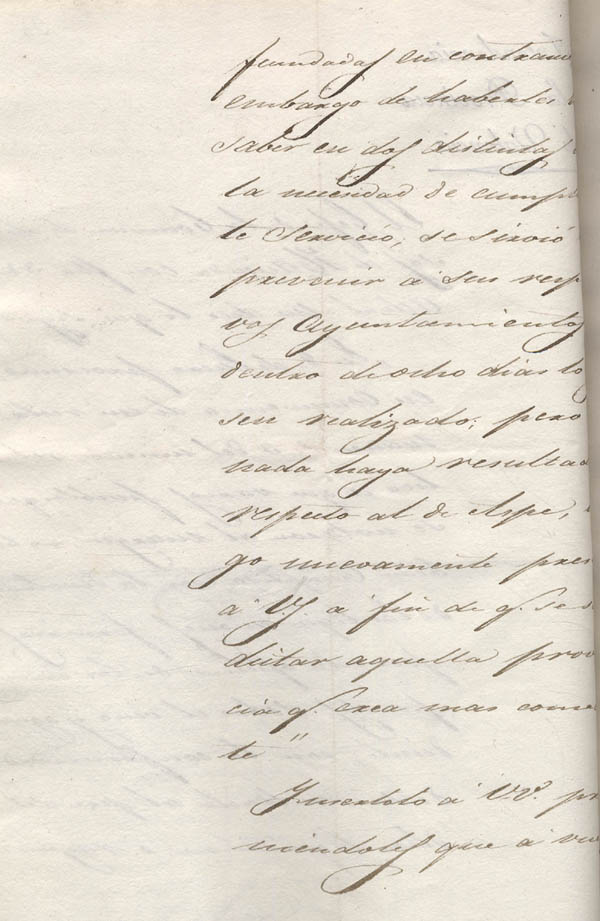 fundadas en contrario
embargo de haberles
saber en dos distintas
la necesidad de cumpl
te Servicio, se sirvió
prevenir á sus resp
vos Ayuntamientos
dentro de ocho dias lo
sen realizado; pero
nada haya resultad
respecto al de Aspe,
go nuevamente pres
á V.S. a fin de q. se s
dictar aquella prov
cia q. crea mas conve
te"
Insertolo á V.V. pr
niendoles que á vu